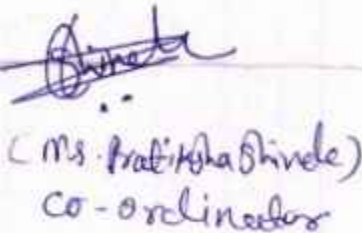 Shinde
(Ms. Pratiksha Shinde)
co-ordinator